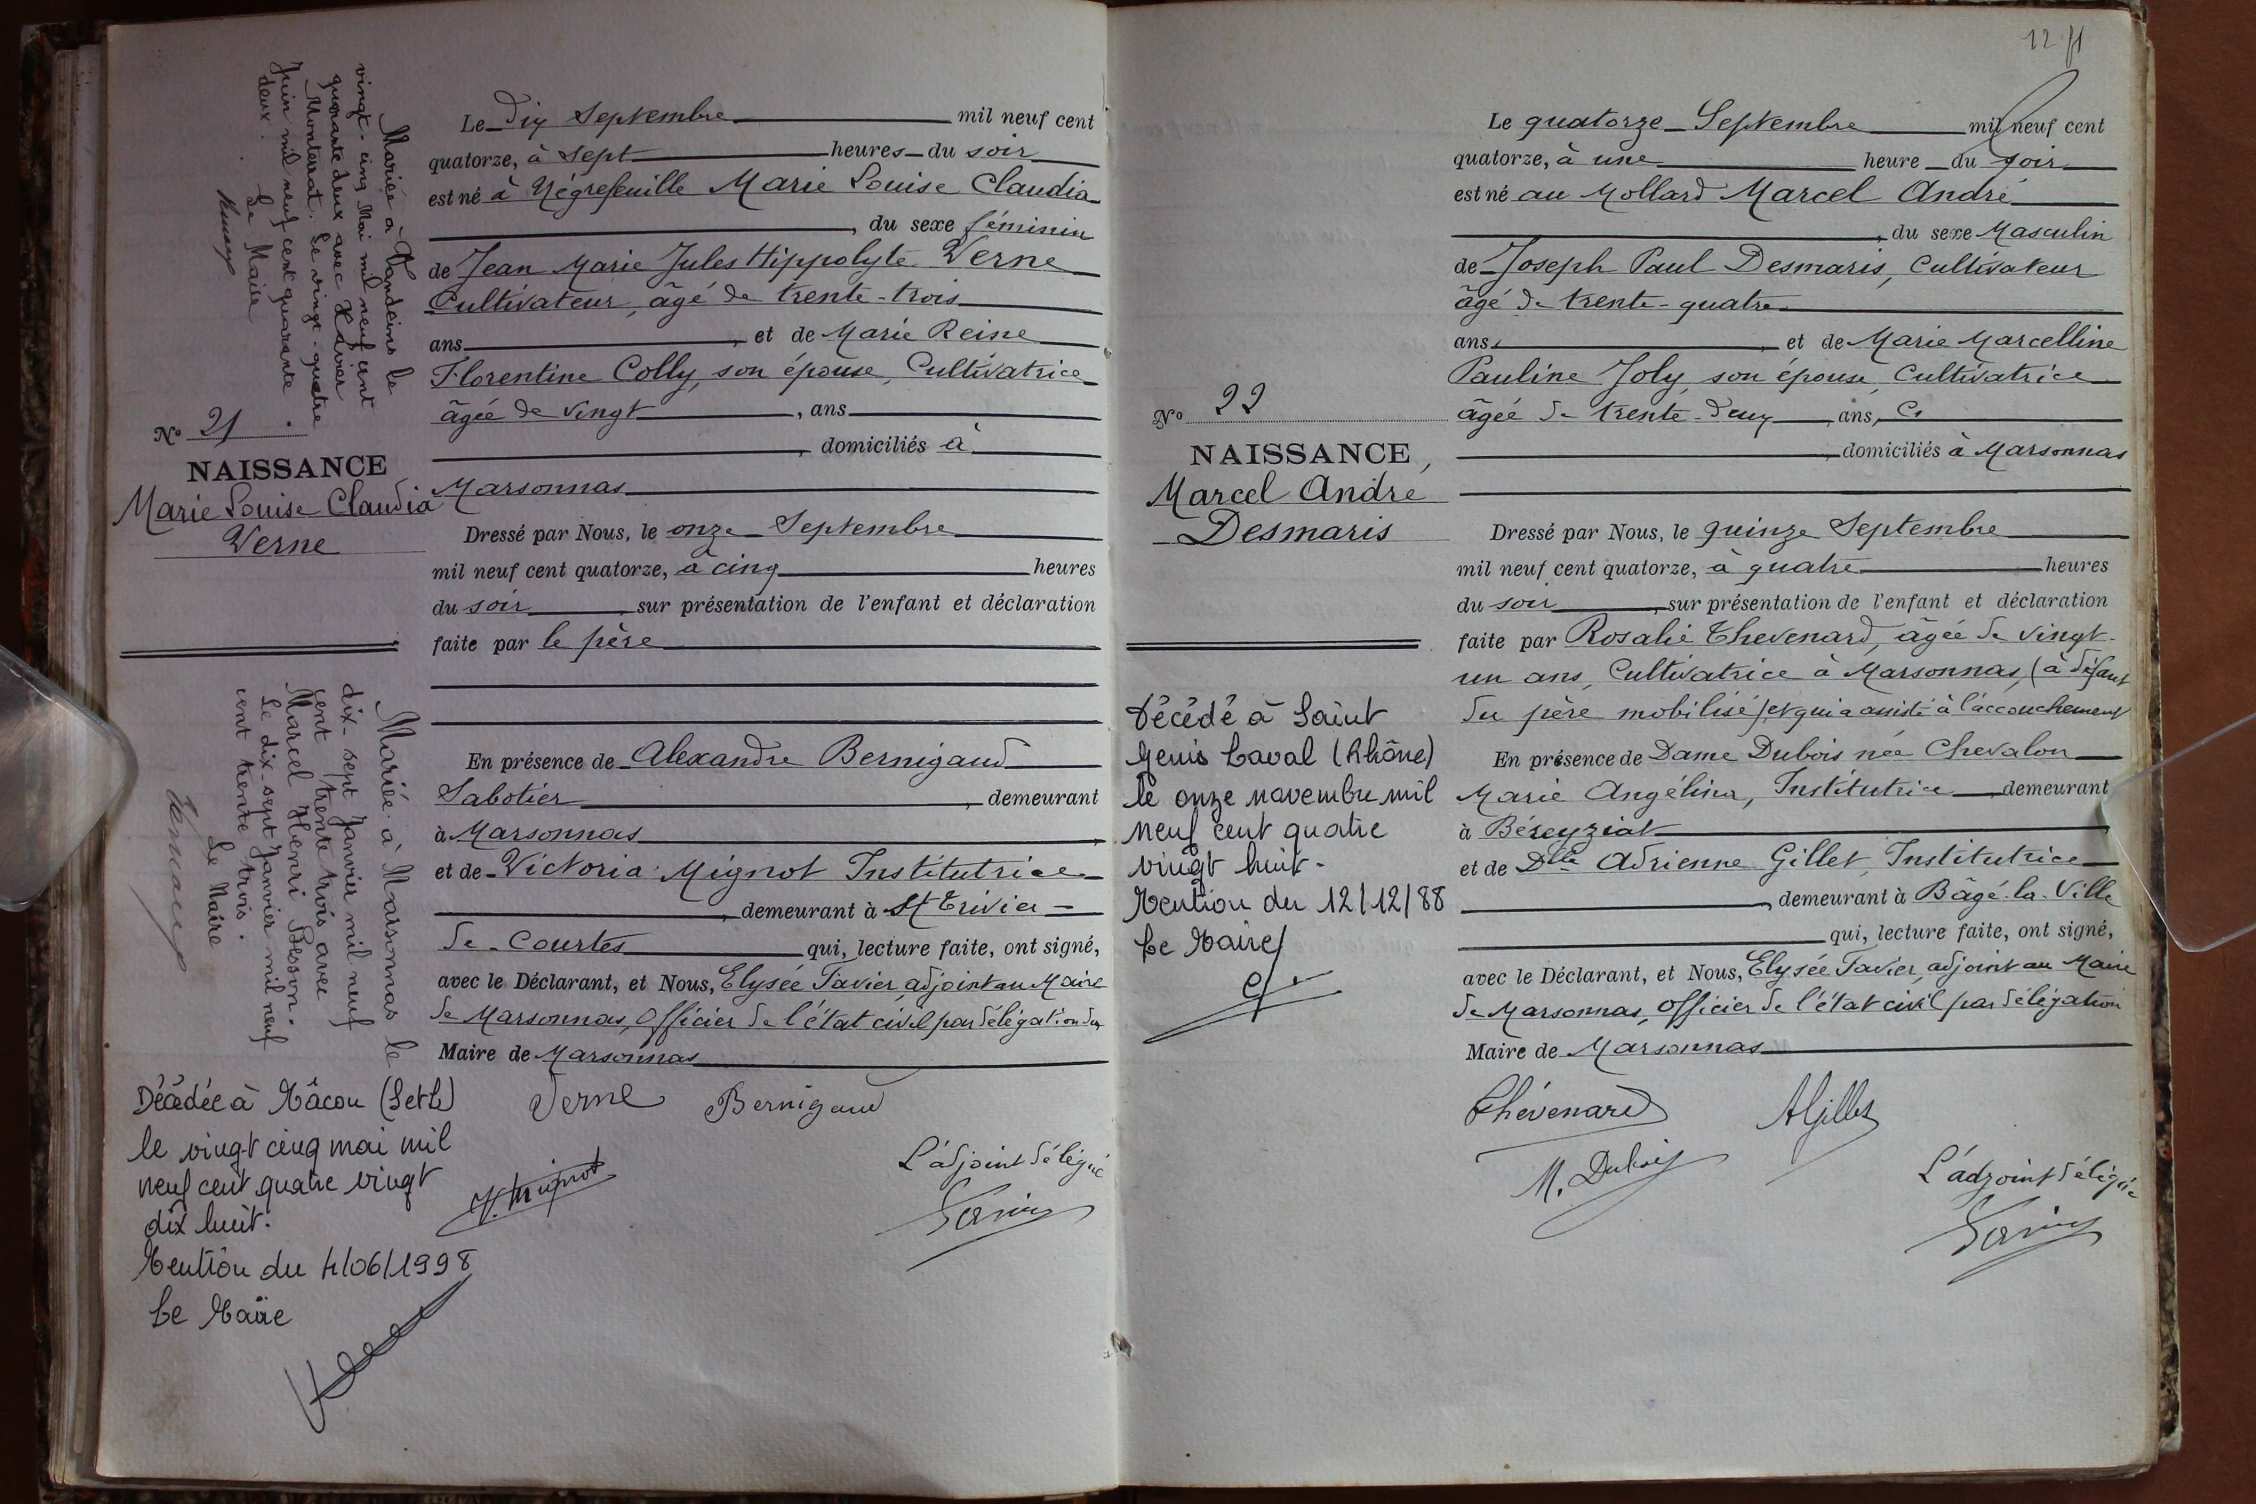 Mariée à Vandeins le
vingt-cinq Mai mil neuf cent
quarante deux avec Xavier
Monterrat. Le vingt-quatre
Juin mil neuf cent quarante
deux.
Le Maire
Nº 21
NAISSANCE
Marie Louise Claudia
Verne
Mariée à Marsonnas le
dix-sept Janvier mil neuf
cent trente trois avec
Marcel Henri Besson.
Le dix-sept Janvier mil neuf
cent trente trois.
Le Maire
Décédée à Mâcon (S et L)
le vingt cinq mai mil
neuf cent quatre vingt
dix huit.
Mention du 4/06/1998
Le Maire
Le Dix Septembre mil neuf cent
quatorze, à sept heures du soir
est né à Négrefeuille Marie Louise Claudia
, du sexe féminin
de Jean Marie Jules Hippolyte Verne
Cultivateur, âgé de trente-trois
ans, et de Marie Reine
Florentine Colly, son épouse, Cultivatrice
âgée de vingt, ans
, domiciliés à
Marsonnas
Dressé par Nous, le onze Septembre
mil neuf cent quatorze, à cinq heures
du soir, sur présentation de l'enfant et déclaration
faite par le père
En présence de Alexandre Bernigaud
Sabotier, demeurant
à Marsonnas
et de Victoria Mignot Institutrice
, demeurant à St Trivier-
de-Courtes qui, lecture faite, ont signé,
avec le Déclarant, et Nous, Elysée Favier, adjoint au Maire
de Marsonnas, Officier de l'état civil par délégation du
Maire de Marsonnas
Verne Bernigaud
V. Mignot
L'adjoint délégué
Favier
12
Nº 22
NAISSANCE,
Marcel André
Desmaris
Décédé à Saint
Genis Laval (Rhône)
le onze novembre mil
neuf cent quatre
vingt huit-
Mention du 12/12/88
Le Maire
Le quatorze Septembre mil neuf cent
quatorze, à une heure du soir
est né au Mollard Marcel André
, du sexe Masculin
de Joseph Paul Desmaris, Cultivateur
âgé de trente-quatre
ans, et de Marie Marcelline
Pauline Joly, son épouse, Cultivatrice
âgée de trente-deux, ans,
, domiciliés à Marsonnas
Dressé par Nous, le quinze Septembre
mil neuf cent quatorze, à quatre heures
du soir, sur présentation de l'enfant et déclaration
faite par Rosalie Thevenard, âgée de vingt-
un ans, Cultivatrice à Marsonnas, (à défaut
du père mobilisé) et qui a assisté à l'accouchement
En présence de Dame Dubois née Chevalon
Marie Angélina, Institutrice, demeurant
à Béreyziat
et de Dlle Adrienne Gillet, Institutrice
, demeurant à Bâgé-la-Ville
qui, lecture faite, ont signé,
avec le Déclarant, et Nous, Elysée Favier, adjoint au Maire
de Marsonnas, Officier de l'état civil par délégation
Maire de Marsonnas
Thévenard AGillet
M. Dubois
L'adjoint délégué
Favier